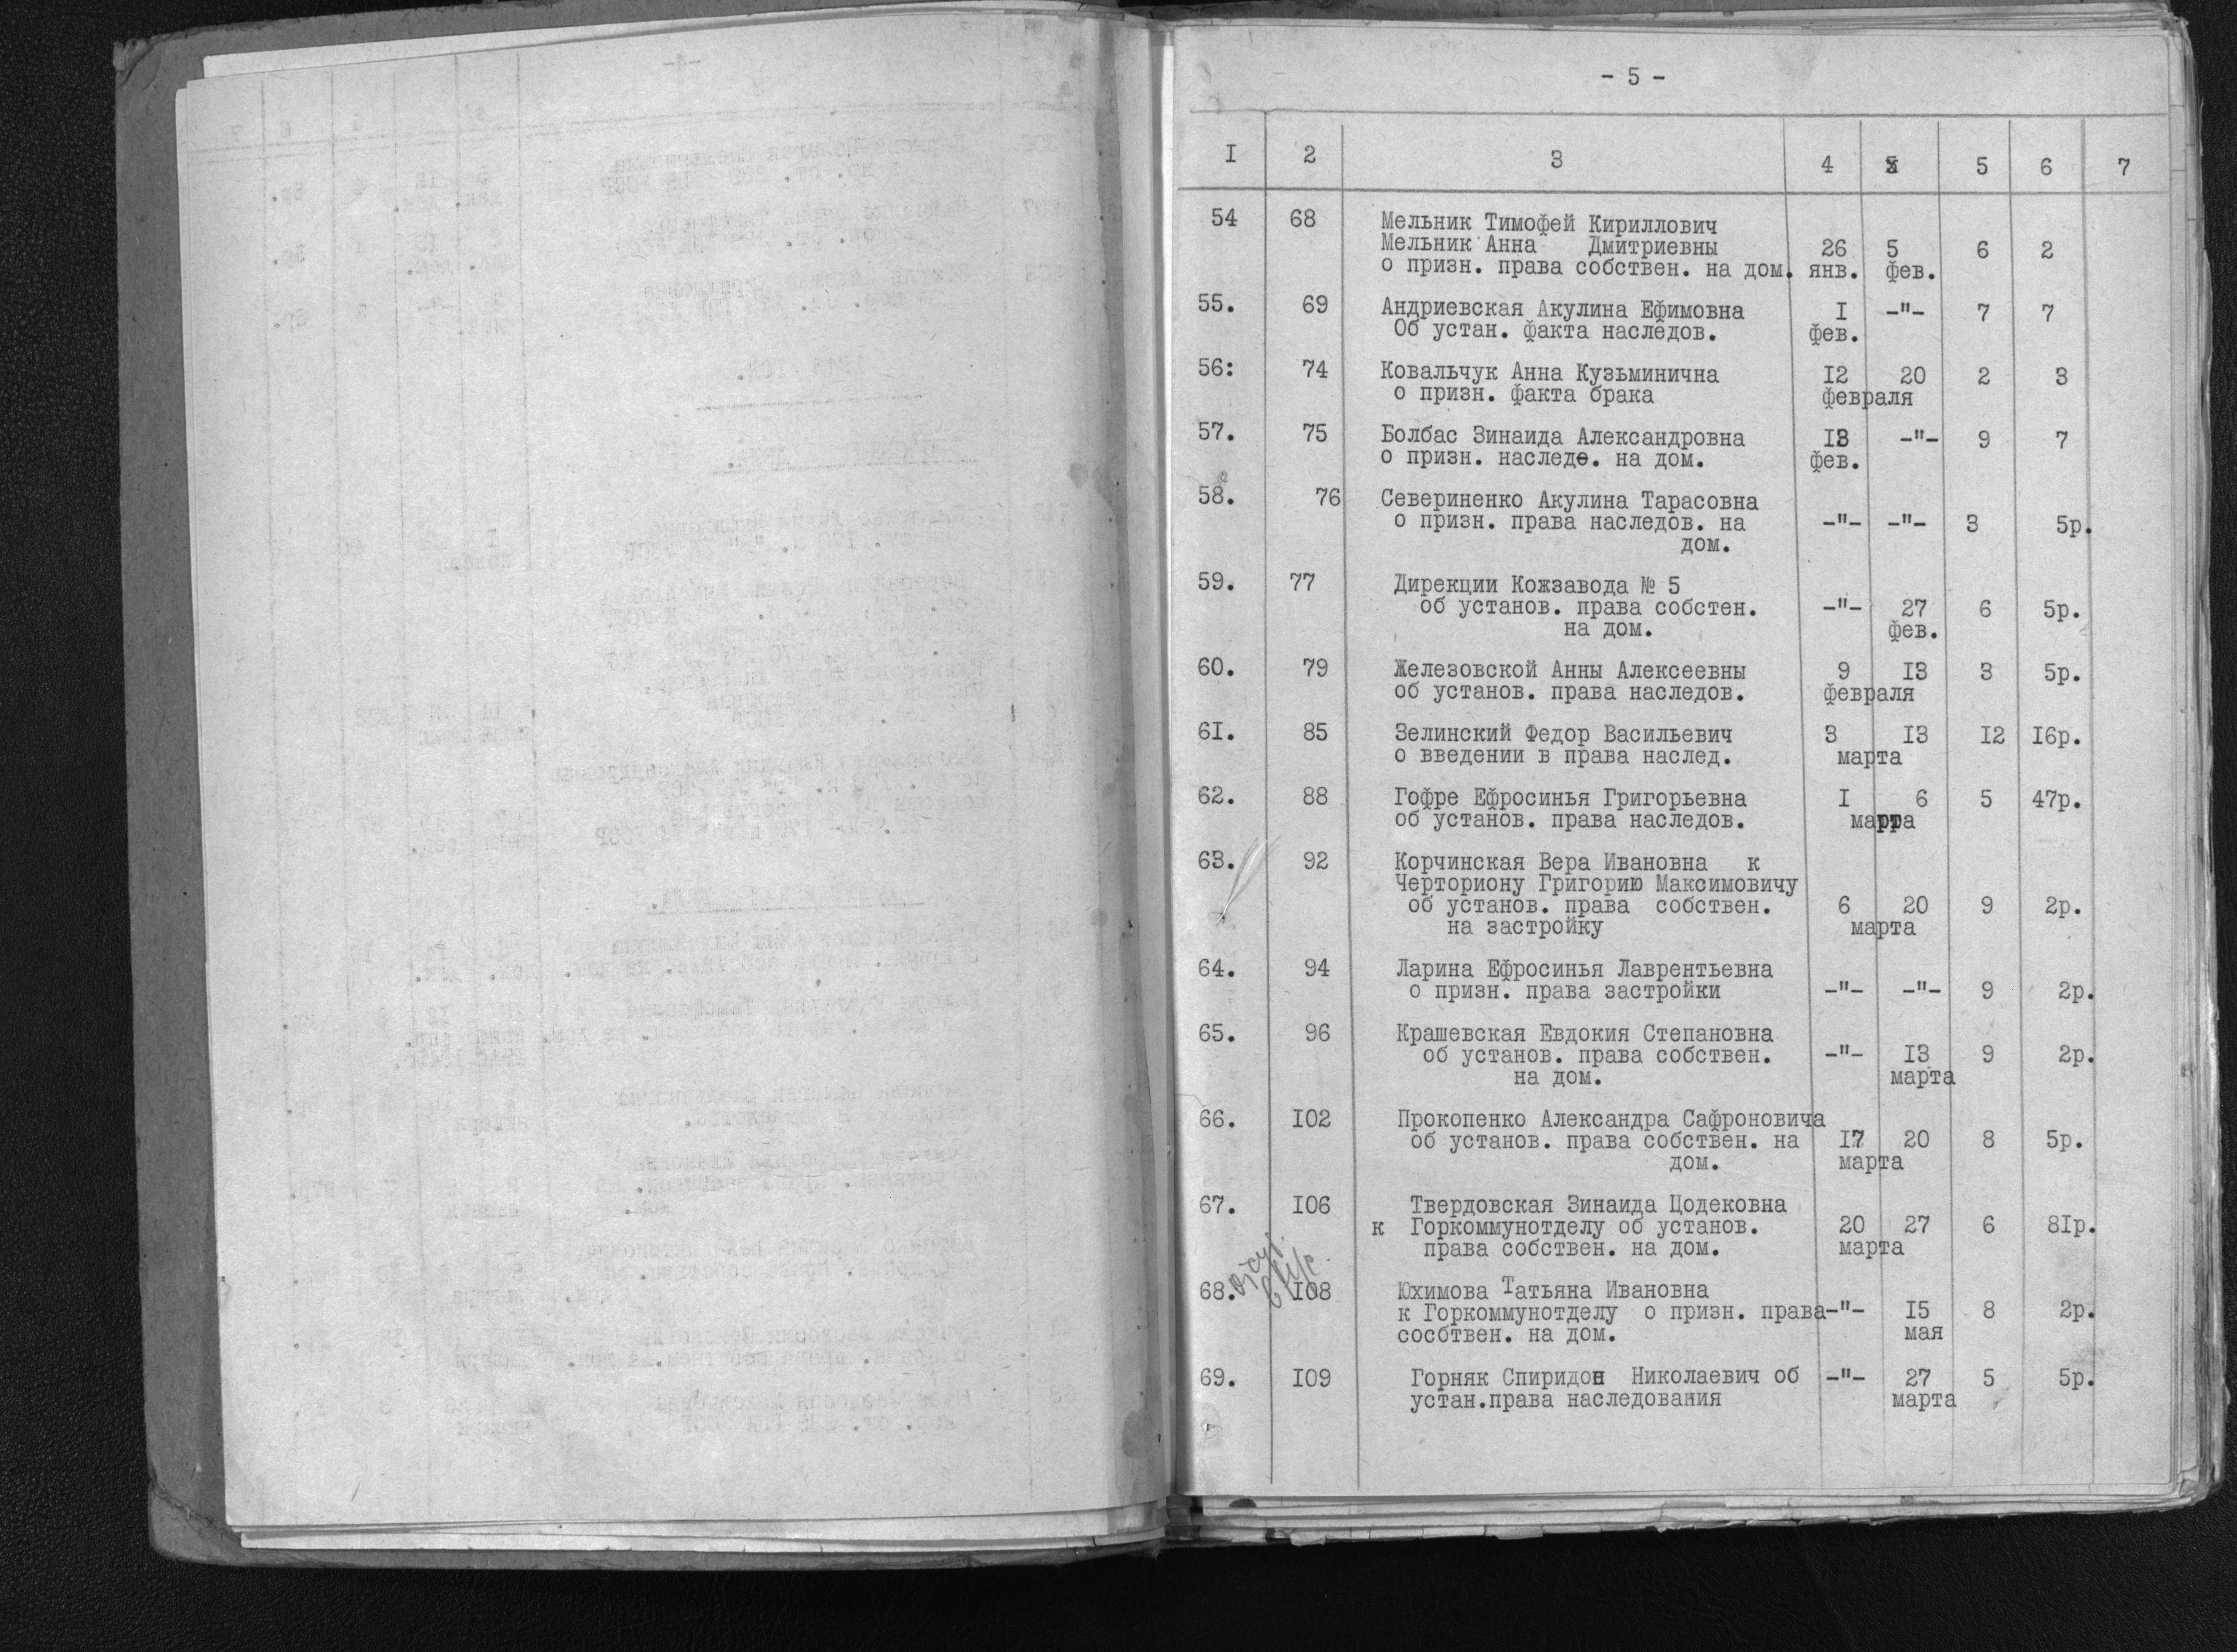 - 5 -
I 2 3 4 5 6 7
54 68 Мельник Тимофей Кириллович
Мельник Анна Дмитриевны 26 5 6 2
о призн. права собствен. на дом. янв. фев.
55. 69 Андриевская Акулина Ефимовна I -"- 7 7
Об устан. факта наследов. фев.
56: 74 Ковальчук Анна Кузьминична I2 20 2 3
о призн. факта брака февраля
57. 75 Болбас Зинаида Александровна I3 -"- 9 7
о призн. наследо. на дом. фев.
58. 76 Севериненко Акулина Тарасовна
о призн. права наследов. на -"- -"- 3 5р.
дом.
59. 77 Дирекции Кожзавода № 5
об установ. права собстен. -"- 27 6 5р.
на дом. фев.
60. 79 Железовской Анны Алексеевны 9 I3 3 5р.
об установ. права наследов. февраля
6I. 85 Зелинский Федор Васильевич 3 I3 I2 I6р.
о введении в права наслед. марта
62. 88 Гофре Ефросинья Григорьевна I 6 5 47р.
об установ. права наследов. марта
63. 92 Корчинская Вера Ивановна к
Черториону Григорию Максимовичу
об установ. права собствен. 6 20 9 2р.
на застройку марта
64. 94 Ларина Ефросинья Лаврентьевна
о призн. права застройки -"- -"- 9 2р.
65. 96 Крашевская Евдокия Степановна
об установ. права собствен. -"- I3 9 2р.
на дом. марта
66. I02 Прокопенко Александра Сафроновича
об установ. права собствен. на I7 20 8 5р.
дом. марта
67. I06 Твердовская Зинаида Цодековна
к Горкоммунотделу об установ. 20 27 6 8Iр.
права собствен. на дом. марта
68. I08 Юхимова Татьяна Ивановна
к Горкоммунотделу о призн. права -"- I5 8 2р.
сосбтвен. на дом. мая
69. I09 Горняк Спиридон Николаевич об -"- 27 5 5р.
устан.права наследования марта